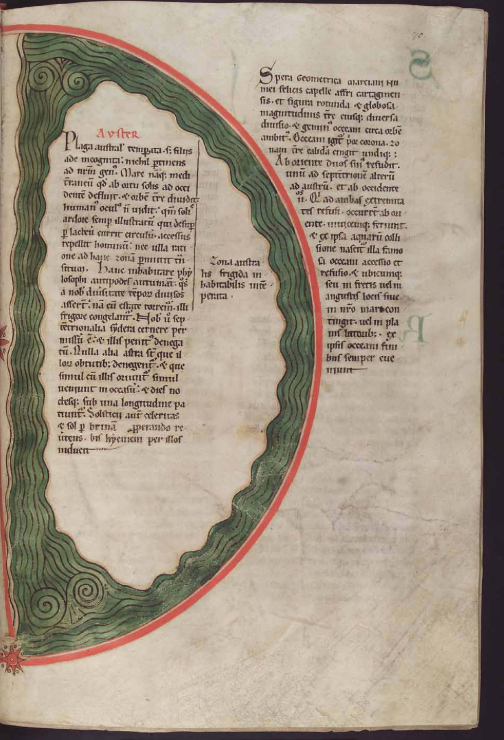 AVSTER
Plaga austral' temperata. s; filiis
ade incognita. nichil ptinens
ad nrm gen'. Mare naq; medi
terraneu qd ab ortu solis ad occi
dente defluit. & orbe tre diuidit
humani oculus n uidit. qm solis
ardore semp illustratu qui desup
p lacteu currit circulu. accessus
repellit hominu. nec ulla rati
one ad hanc zona pmittit tn
situm. Hanc inhabitare phy
losophi antipodes autumant. qs
a nob diuersitate tepor diuisos
assert. na cu estate torrem. illi
frigore congelant'. Nob u sep
tentrionalia sidera cernere per
missu e. & illis penit' denega
tu. Nulla alia astra st que il
lor obtutib; denegent. & que
simul cu illis oriunt' simul
ueniunt in occasu. & dies no
ctesq; sub una longitudine pa
tiunt'. Solsticii aut celeritas
& sol p bruma
bis hyemem per illos
inducit
Zona austra
lis frigida in
habitabilis inte
perata.
Spera geometrica marciani mi
nei felicis capelle affri cartaginen
sis. et figura rotunda & globosa
magnitudinis tre eiusq; diuersa
diuisio. & geminu occeani circa orbe
ambit'. Occeani igit' por corona. zo
nam tre calida cingit undiq;.
Ab oriente duos sin' refudit.
unu ad septentrione alteru
ad austru. et ab occidente
ii. Qr ad ambas extremita
tes refusi. occurrit ab ori
ente. unicuiq; ferunt'.
& ex ipsa aquaru colli
sione nascit' illa famo
sa occeani accessio et
refusio. & ubicumq;
seu in fretis uel in
angustis locis siue
in nro mari con
tingit. uel in pla
nis littorib;. ex
ipsis occeani sini
bus semper eue
niunt